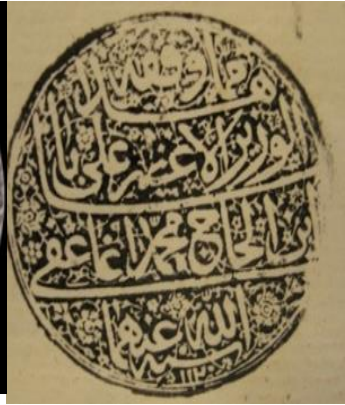 هذا ما وقفه
الوزير الاعظم علي باشا
ابن الحاج محمد اغا عفى
الله عنهما
سنه ١١٢٠